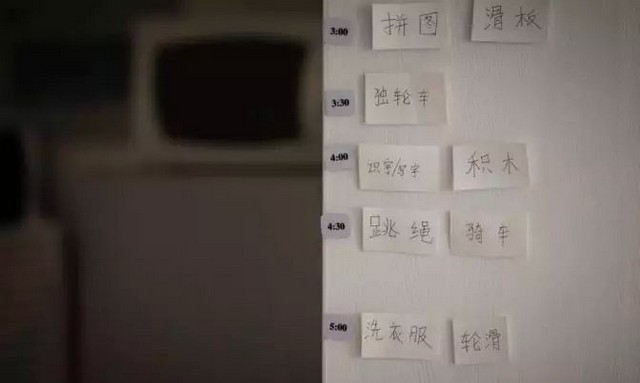 3:00 拼图 滑板
3:30 独轮车
4:00 识字/写字 积木
4:30 跳绳 骑车
5:00 洗衣服 轮滑